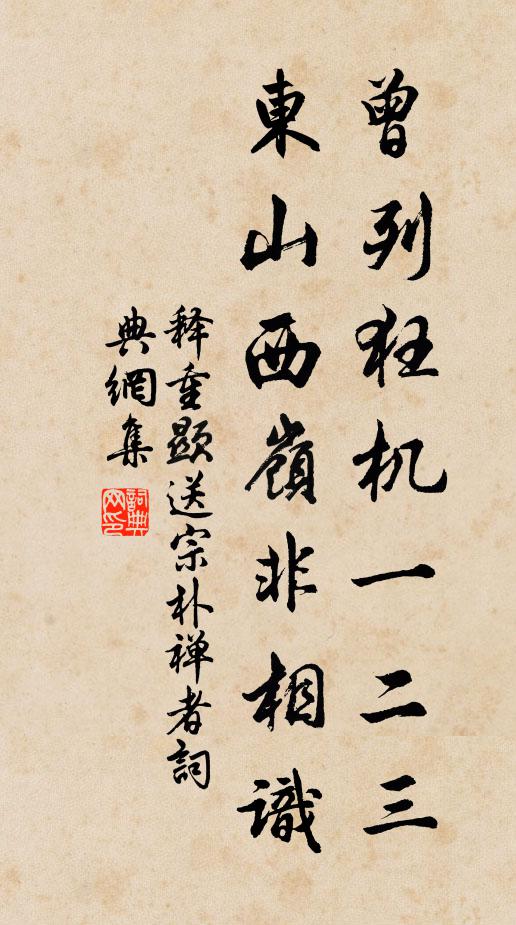 曾列狂机一二三
東山西嶺非相識
释重顯送宗朴禅者詞
典網集
詞典网印